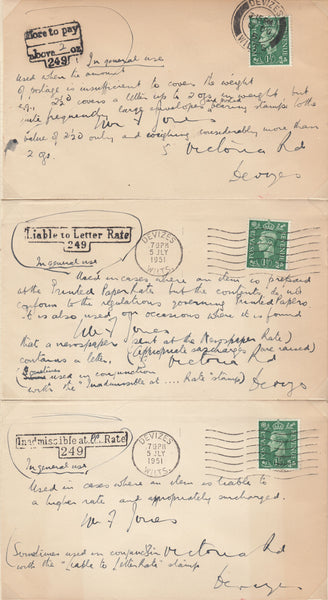 More to pay
above 2 oz
249
In general use
DEVIZES
WILTS
used when the amount
of postage is insufficient to cover the weight
e.g. 2½D covers a letter up to 2 ozs in weight but
quite frequently large envelopes are posted bearing stamps to the
Mr F Jones
value of 2½D only and weighing considerably more than
2 ozs.
5 Victoria Rd
Devizes
Liable to Letter Rate
249
In general use
DEVIZES
7 PM
5 JLY
1951
WILTS.
Used in cases where an item is prepaid
at the Printed Paper Rate but the contents do not
conform to the regulations governing Printed Papers
It is also used on occasions where it is found
Mr F Jones
that a newspaper (sent at the Newspaper Rate)
contains a letter. (Appropriate surcharges are raised)
5 Victoria Rd
(Sometimes used in conjunction
with the "Inadmissible at .... Rate" stamp)
Devizes
Inadmissible at P. Rate
249
In general use
DEVIZES
7 PM
5 JLY
1951
WILTS.
Used in cases where an item is liable to
a higher rate and appropriately surcharged.
Mr F Jones
(Sometimes used in conjunction
with the "Liable to Letter Rate" stamp
Victoria Rd
Devizes